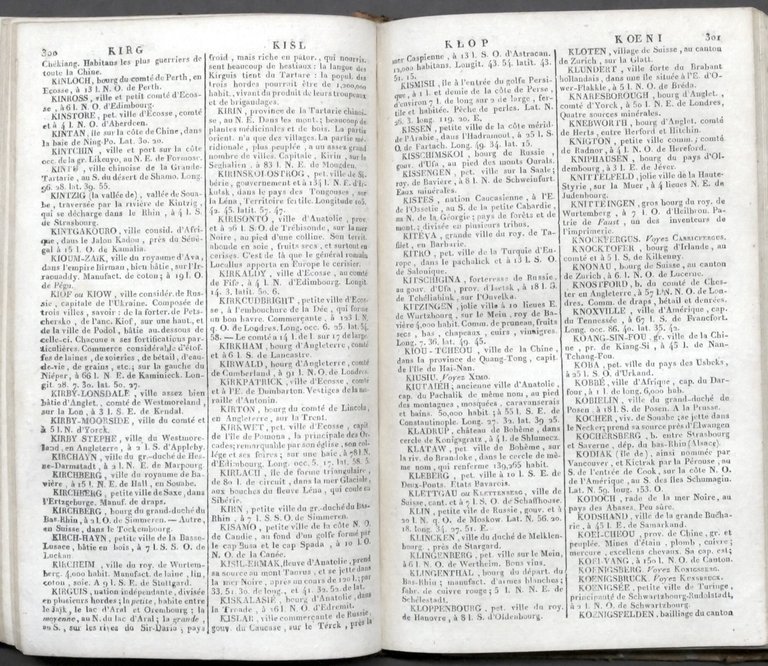 300 KIRG
KISL
Chékiang. Habitans les plus guerriers de
toute la Chine.
KINLOCH, bourg du comté de Perth, en
Ecosse, à 13 l. N. O. de Perth.
KINROSS, ville et petit comté d'Ecosse,
à 6 l. N. O. d'Edimbourg.
KINSTORE, pet. ville d'Ecosse, comté
et à 4 l. N. O. d'Aberdeen.
KINTAN, île sur la côte de Chine, dans
la baie de Ning-Po. Lat. 30. 20.
KINTCHIN, ville et port sur la côte
occ. de la gr. Likeuyo, au N. E. de Formose.
ville chinoise de la Grande-
Tartarie, au S. du désert de Shamo. Long.
96. 28. lat. 39. 55.
KINTZIG (la vallée de), vallée de Souabe,
traversée par la rivière de Kintzig,
qui se décharge dans le Rhin, à 4 l. S.
de Strasbourg.
KINTGAKOURO, ville consid. d'Afrique,
dans le Jalon Kadou, près du Sénégal
à 15 l. O. de Kamalia.
KIOUM-ZAIK, ville du royaume d'Ava,
dans l'empire birman, bien bâtie, sur l'Irraouaddy.
Manufact. de coton; à 19 l. O.
de Pégu.
KIOF ou KIOW, ville considér. de Russie,
capitale de l'Ukraine. Composée de
trois villes, savoir : de la forter. de Petschersko,
de l'anc. Kiof, sur une haut., et
de la ville de Podol, bâtie au-dessous de
celle-ci. Chacune a ses fortifications particulières.
Commerce considérable d'étoffes
de laines, de soieries, de bétail, d'eau-de-vie,
de grains, etc.; sur la gauche du
Niéper, à 66 l. N. E. de Kaminieck. Longit.
28. 7. 30. lat. 50. 27.
KIRBY-LONSDALE, ville assez bien
bâtie d'Anglet., comté de Westmoreland,
sur la Lon, à 3 l. S. E. de Kendal.
KIRBY-MOORSIDE, ville du comté et
à 5 l. N. d'Yorck.
KIRBY STEPHE, ville du Westmoreland,
en Angleterre, à 2 l. S. d'Appleby.
KIRCHAYN, ville du gr.-duché de Hesse-Darmstadt,
à 2 l. N. E. de Marpourg.
KIRCHBERG, ville du royaume de Bavière,
à 15 l. N. E. de Hall, en Souabe.
KIRCHBERG, petite ville de Saxe, dans
l'Ertzgeburge. Manuf. de draps.
KIRCHBERG, bourg du grand-duché du
Bas-Rhin, à 2 l. O. de Simmeren. — Autre,
en Suisse, dans le Tockembourg.
KIRCH-HAYN, petite ville de la Basse-Lusace,
bâtie en bois, à 7 l. S. S. O. de
Luckan.
KIRCHEIM, ville du roy. de Wurtemberg.
4,000 habit. Manufact. de laine, lin,
coton, soie. A 9 l. S. E. de Stuttgard.
KIRGUIS, nation indépendante, divisée
en plusieurs hordes; la petite, habite entre
le Jajk, le lac d'Aral et Orenbourg; la
moyenne, au N. du lac d'Aral; la grande,
au S., sur les rives du Sir-Daria; pays
froid, mais riche en pâtur., qui nourrissent
beaucoup de bestiaux : la langue des
Kirguis tient du Tartare : la popul. des
trois hordes pourroit être de 1,200,000
habit., vivant du produit de leurs troupeaux
et de brigandages.
KIRIN, province de la Tartarie chinoise,
au N. E. Dans les mont.; beaucoup de
plantes médicinales et de bois. La partie
orient. n'a que des villages. La partie méridionale,
plus peuplée, a un assez grand
nombre de villes. Capitale, Kirin, sur le
Seghalien, à 83 l. N. E. de Mougden.
KIRINSKOI-OSTROG, pet. ville de Sibérie,
gouvernement et à 134 l. N. E. d'Irkutsk,
dans le pays des Tongouses, sur
la Léna, Territoire fertile. Longitude 106.
42. lat. 57. 47.
KIRISONTO, ville d'Anatolie, prov.
et à 26 l. S. O. de Trébisonde, sur la mer
Noire, au pied d'une colline. Son territ.
abonde en soie, fruits secs, et surtout en
cerises. C'est de là que le général romain
Lucullus apporta en Europe le cerisier.
KIRKALDY, ville d'Ecosse, au comté
de Fife, à 4 l. N. d'Edimbourg. Longit.
14. 3. latit. 50. 6.
KIRKCUDBRIGHT, petite ville d'Ecosse,
à l'embouchure de la Dée, qui forme
un bon havre. Commerçante, à 123 l. N.
q. O. de Londres. Long. occ. 6. 25. lat. 54.
58. — Le comté a 14 l. de l. sur 17 de large.
KIRKHAM, bourg d'Angleterre, comté
et à 6 l. S. de Lancastre.
KIRWALD, bourg d'Angleterre, comté
de Cumberland, à 91 l. N. O. de Londres.
KIRKPATRICK, ville d'Ecosse, comté
et à l'E. de Dumbarton. Vestiges de la muraille
d'Antonin.
KIRTON, bourg du comté de Lincoln,
en Angleterre, sur la Trent.
KIRKWET, pet. ville d'Ecosse, capit
de l'île de Pomona, la principale des Orcades,
remarquable par son église, son collége
et ses foires; sur une baie, à 78 l. N.
d'Edimbourg, Long. occ. 5. 17. lat. 58. 5.
KIRLACH, île de forme triangulaire,
de 80 l. de circuit, dans la mer Glaciale,
aux bouches du fleuve Léna, qui coule en
Sibérie.
KIRN, petite ville du gr. duché du Bas-Rhin,
à 7 l. S. S. O. de Simmeren.
KISAMO, petite ville de la côte N. O.
de Candie, au fond d'un golfe formé par
le cap Susa et le cap Spada, à 10 l. O.
N. O. de la Canée.
KISIL-ERMAK, fleuve d'Anatolie, prend
sa source au mont Taurus, et se jette dans
la mer Noire, après un cours de 120 l.; par
33. 51. 30. de long., et 41. 39. 52. de lat.
KISKALASIÉ, bourg d'Anatolie, dans
la Troade, à 26 l. N. O. d'Edremit.
KISLAR, ville commerçante de Russie,
gouv. du Caucase, sur le Térek, près la
KLOP
KOENI 301
mer Caspienne, à 13 l. S. O. d'Astracan.
12,000 habitans. Longit. 43. 54. latit. 43.
51. 15.
KISMISH, île à l'entrée du golfe Persique,
à 1 l. et demie de la côte de Perse,
d'environ 7 l. de long sur 2 de large, fertile
et habitée. Pêche de perles. Lat. N.
26. 3. long. 119. 20. E.
KISSEN, petite ville de la côte mérid.
de l'Arabie, dans l'Hadramout, à 25 l. S.
O. de Fartach. Long. 49. 34. lat. 15.
KISSCHIMSKOI, bourg de Russie,
gouv. d'Ufa, au pied des monts Ourals.
KISSENGEN, pet. ville sur la Saale;
roy. de Bavière, à 8 l. N. de Schweinfurt.
Eaux minérales.
KISTES, nation Caucasienne, à l'E.
de l'Ossetie, au S. de la petite Cabardie,
au N. de la Géorgie; pays de forêts et de
mont.; divisée en plusieurs tribus.
KITEVA, grande ville du roy. de Tafilet,
en Barbarie.
KITRO, pet. ville de la Turquie d'Europe,
dans le pachalick et à 13 l. S. O.
de Salonique.
KITSCHIGINA, forteresse de Russie,
au gouv. d'Ufa, prov. d'Isetsk, à 18 l. S.
de Tchéliabinsk, sur l'Ouvelka.
KITZINGEN, jolie ville à 10 lieues E.
de Wurtzbourg, sur le Mein, roy. de Bavière
4,000 habit. Comm. de pruneau, fruits
secs, bas, chapeaux, cuirs, vinaigres.
Long. 7. 36. lat. 49. 45.
KIOU-TCHEOU, ville de la Chine,
dans la province de Quang-Tong, capit.
de l'île de Hai-Nan.
KIUSIU. Voyez XIMO.
KIUTAIEH; ancienne ville d'Anatolie,
cap. du Pachalik de même nom, au pied
des montagnes, mosquées, caravanserais
et bains. 50,000 habit.; à 55 l. S. E. de
Constantinople. Long. 27. 32. lat. 39. 25.
KLADRUP, château de Bohême, dans
cercle de Konigsgratz, à 4 l. de Shlomecz.
KLATAW, pet. ville de Bohême, sur
la riv. de Brandske, dans le cercle de même
nom, qui renferme 139,265 habit.
KLEBERG, pet. ville à 10 l. S. E. de
Deux-Ponts. Etats Bavarois.
KLETTGAU ou KLETTENBERG, ville de
Suisse, cant. et à 7 l. S. O. de Schaffhouse.
KLIN, petite ville de Russie, gouv. et à
20 l. N. q. O. de Moskow Lat. N. 56. 20.
18. long. 34. 27. 51. E.
KLINCKEN, ville du duché de Mecklenbourg,
près de Stargard.
KLINGENBERG, pet. ville sur le Mein,
à 6 l. N. O. de Wertheim. Bons vins.
KLINGENTHAL, bourg du départ. du
Bas-Rhin; manufact. d'armes blanches;
fabr. de cuivre rouge; 5 l. N. N. E. de
Schélestadt.
KLOPPENBOURG, pet. ville du roy.
de Hanovre, à 8 l. S. d'Oldembourg.
KLOTEN, village de Suisse, au canton
de Zurich, sur la Glatt.
KLUNDERT, ville forte du Brabant
hollandais, dans une île située à l'E. d'Ower-Flakkle,
à 5 l. N. O. de Bréda.
KNARESBOROUGH, bourg d'Anglet.,
comté d'Yorck, à 50 l. N. E. de Londres,
Quatre sources minérales.
KNEBWORTH, bourg d'Anglet. comté
de Herts, entre Herford et Hitchin.
KNIGTON, petite ville comm.; comté
de Radnor, à 4 l. N. O. de Hereford.
KNIPHAUSEN, bourg du pays d'Oldembourg,
à 3 l. E. de Jever.
KNITTEFELD, jolie ville de la Haute-Styrie,
sur la Muer, à 4 lieues N. E. de
Judenbourg.
KNITTINGEN, gros bourg du roy. de
Wurtemberg, à 7 l. O. d'Heilbron. Patrie
de Faust, un des inventeurs de
l'imprimerie.
KNOCKFERGUS. Voyez CARRICFERGUS.
KNOCKTOFER, bourg d'Irlande, au
comté et à 5 l. S. de Kilkenny.
KNONAU, bourg de Suisse, au canton
de Zurich, à 6 l. N. O. de Lucerne.
KNOSTFORD, b. du comté de Chester
en Angleterre, à 57 l. N. N. O. de Londres.
Comm. de draps, bétail et denrées.
KNOXVILLE, ville d'Amérique, cap.
du Tennessée, à 67 l. S. E. de Francfort.
Long. occ. 86. 40. lat. 35. 42.
KOANG-SIN-FOU, gr. ville de la Chine,
pr. de Kiang-Si, à 45 l. de Nan-Tchang-Fou.
KOBA, pet. ville du pays des Usbeks,
à 25 l. S. O. d'Urkand.
KOBBÉ, ville d'Afrique, cap. du Darfour,
à 1 l. de long. 6,000 hab.
KOBIELIN, ville du grand-duché de
Posen à 18 l. S. de Posen. A la Prusse.
KOCHER, riv. de Souabe; se jette dans
le Necker; prend sa source près d'Elwangen
KOCHERSBERG, b. entre Strasbourg
et Saverne, dép. du bas-Rhin (Alsace).
KODIAK (île de), ainsi nommée par
Vancouver, et Kictzak par la Pérouse, au
S. de l'entrée de Cook, sur la côte N. O.
de l'Amérique, au S. des îles Schumagin.
Lat. N. 59. long. 153. O.
KODOCH, rade de la mer Noire, au
pays des Abases. Peu sûre.
KODSHAND, ville de la grande Bucharie,
à 43 l. E. de Samarkand.
KOEI-CHEOU, prov. de Chine, gr. et
peuplée. Mines d'étain, plomb, cuivre;
mercure, excellens chevaux. Sa cap. est;
KOEI-YANG, à 150 l. N. O. de Canton.
KOENIGSBERG. Voyez KONISBERG.
KOENIGSBRUCK. Voyez
KOENIGSÉE, petite ville de Turinge,
principauté de Schwartzbourg-Rudolstadt,
à 2 l. N. O. de Schwartzbourg.
KOENIGSFELDEN, bailliage du canton